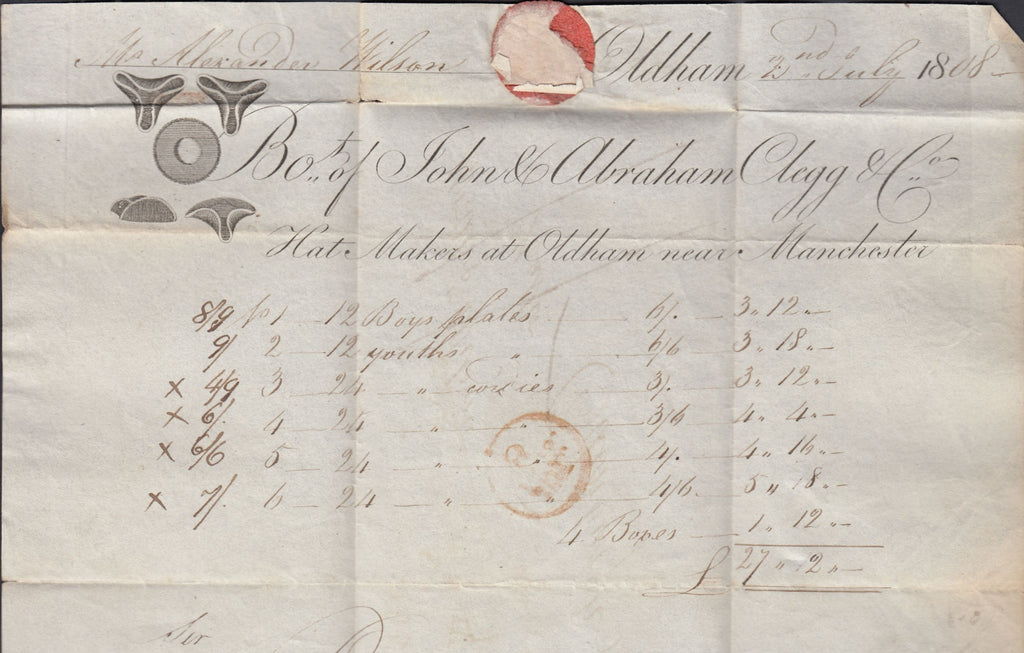 Mr Alexander Wilson Oldham 2nd July 1808
Bot. of John & Abraham Clegg & Co.
Hat Makers at Oldham near Manchester
8/9 No 1 — 12 Boys plates — 6/. — 3 " 12 " —
9/ 2 — 12 youths " — 6/6 — 3 " 18 " —
x 4/9 3 — 24 " cories — 3/. — 3 " 12 " —
x 6/. 4 — 24 — " — " — 3/6 — 4 " 4 " —
x 6/6 5 — 24 — " — " — 4/. — 4 " 16 " —
x 7/. 6 — 24 — " — " — 4/6 — 5 " 8 " —
4 Boxes — 1 " 12 " —
£ 27 " 2 " —
Sir